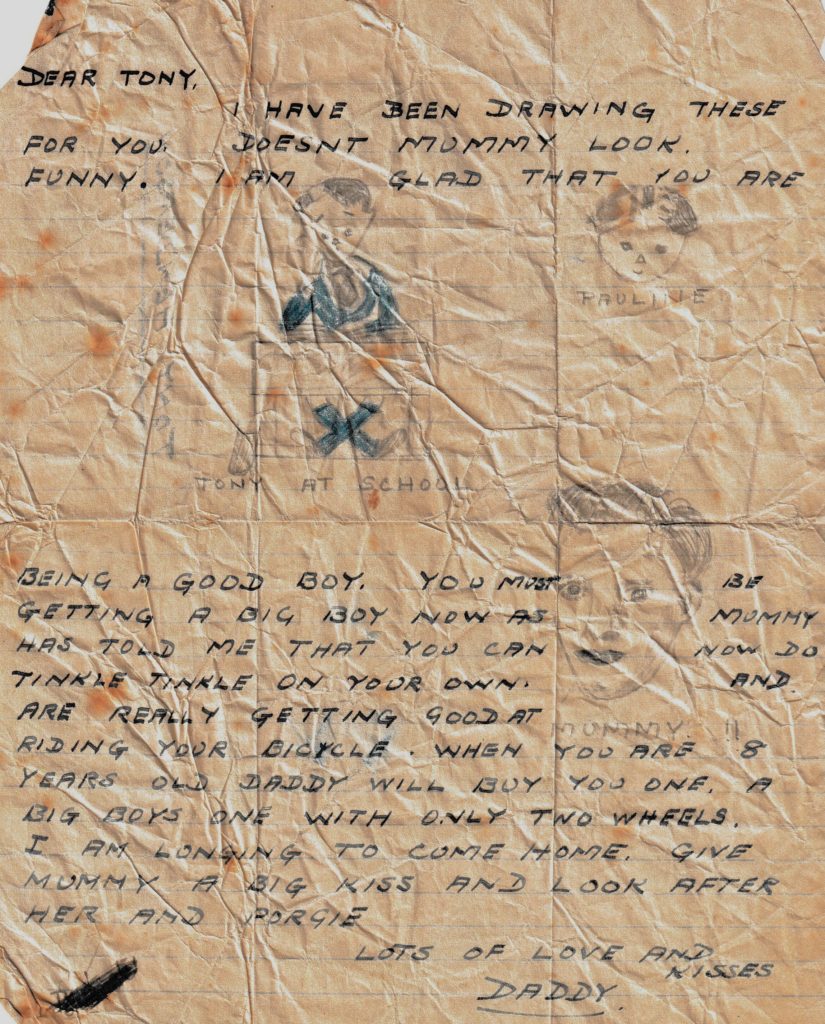 DEAR TONY,
I HAVE BEEN DRAWING THESE
FOR YOU. DOESNT MUMMY LOOK.
FUNNY. I AM GLAD THAT YOU ARE
PAULINE
TONY AT SCHOOL
BEING A GOOD BOY. YOU MUST BE
GETTING A BIG BOY NOW AS MUMMY
HAS TOLD ME THAT YOU CAN NOW DO
TINKLE TINKLE ON YOUR OWN. AND.
ARE REALLY GETTING GOOD AT
MUMMY. !!
RIDING YOUR BICYCLE. WHEN YOU ARE 8
YEARS OLD DADDY WILL BUY YOU ONE. A
BIG BOYS ONE WITH ONLY TWO WHEELS.
I AM LONGING TO COME HOME. GIVE
MUMMY A BIG KISS AND LOOK AFTER
HER AND PORGIE
LOTS OF LOVE AND
KISSES
DADDY.